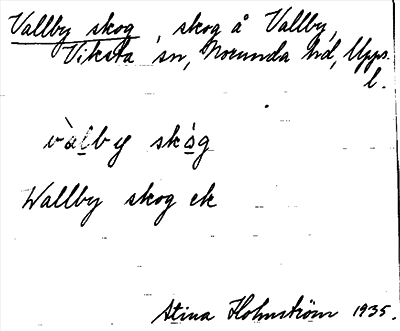 Vallby skog, skog å Vallby,
Viksta sn, Norunda hd, Upps.
l.
vàlby skåg
Wallby skog ek
Stina Holmström 1935.